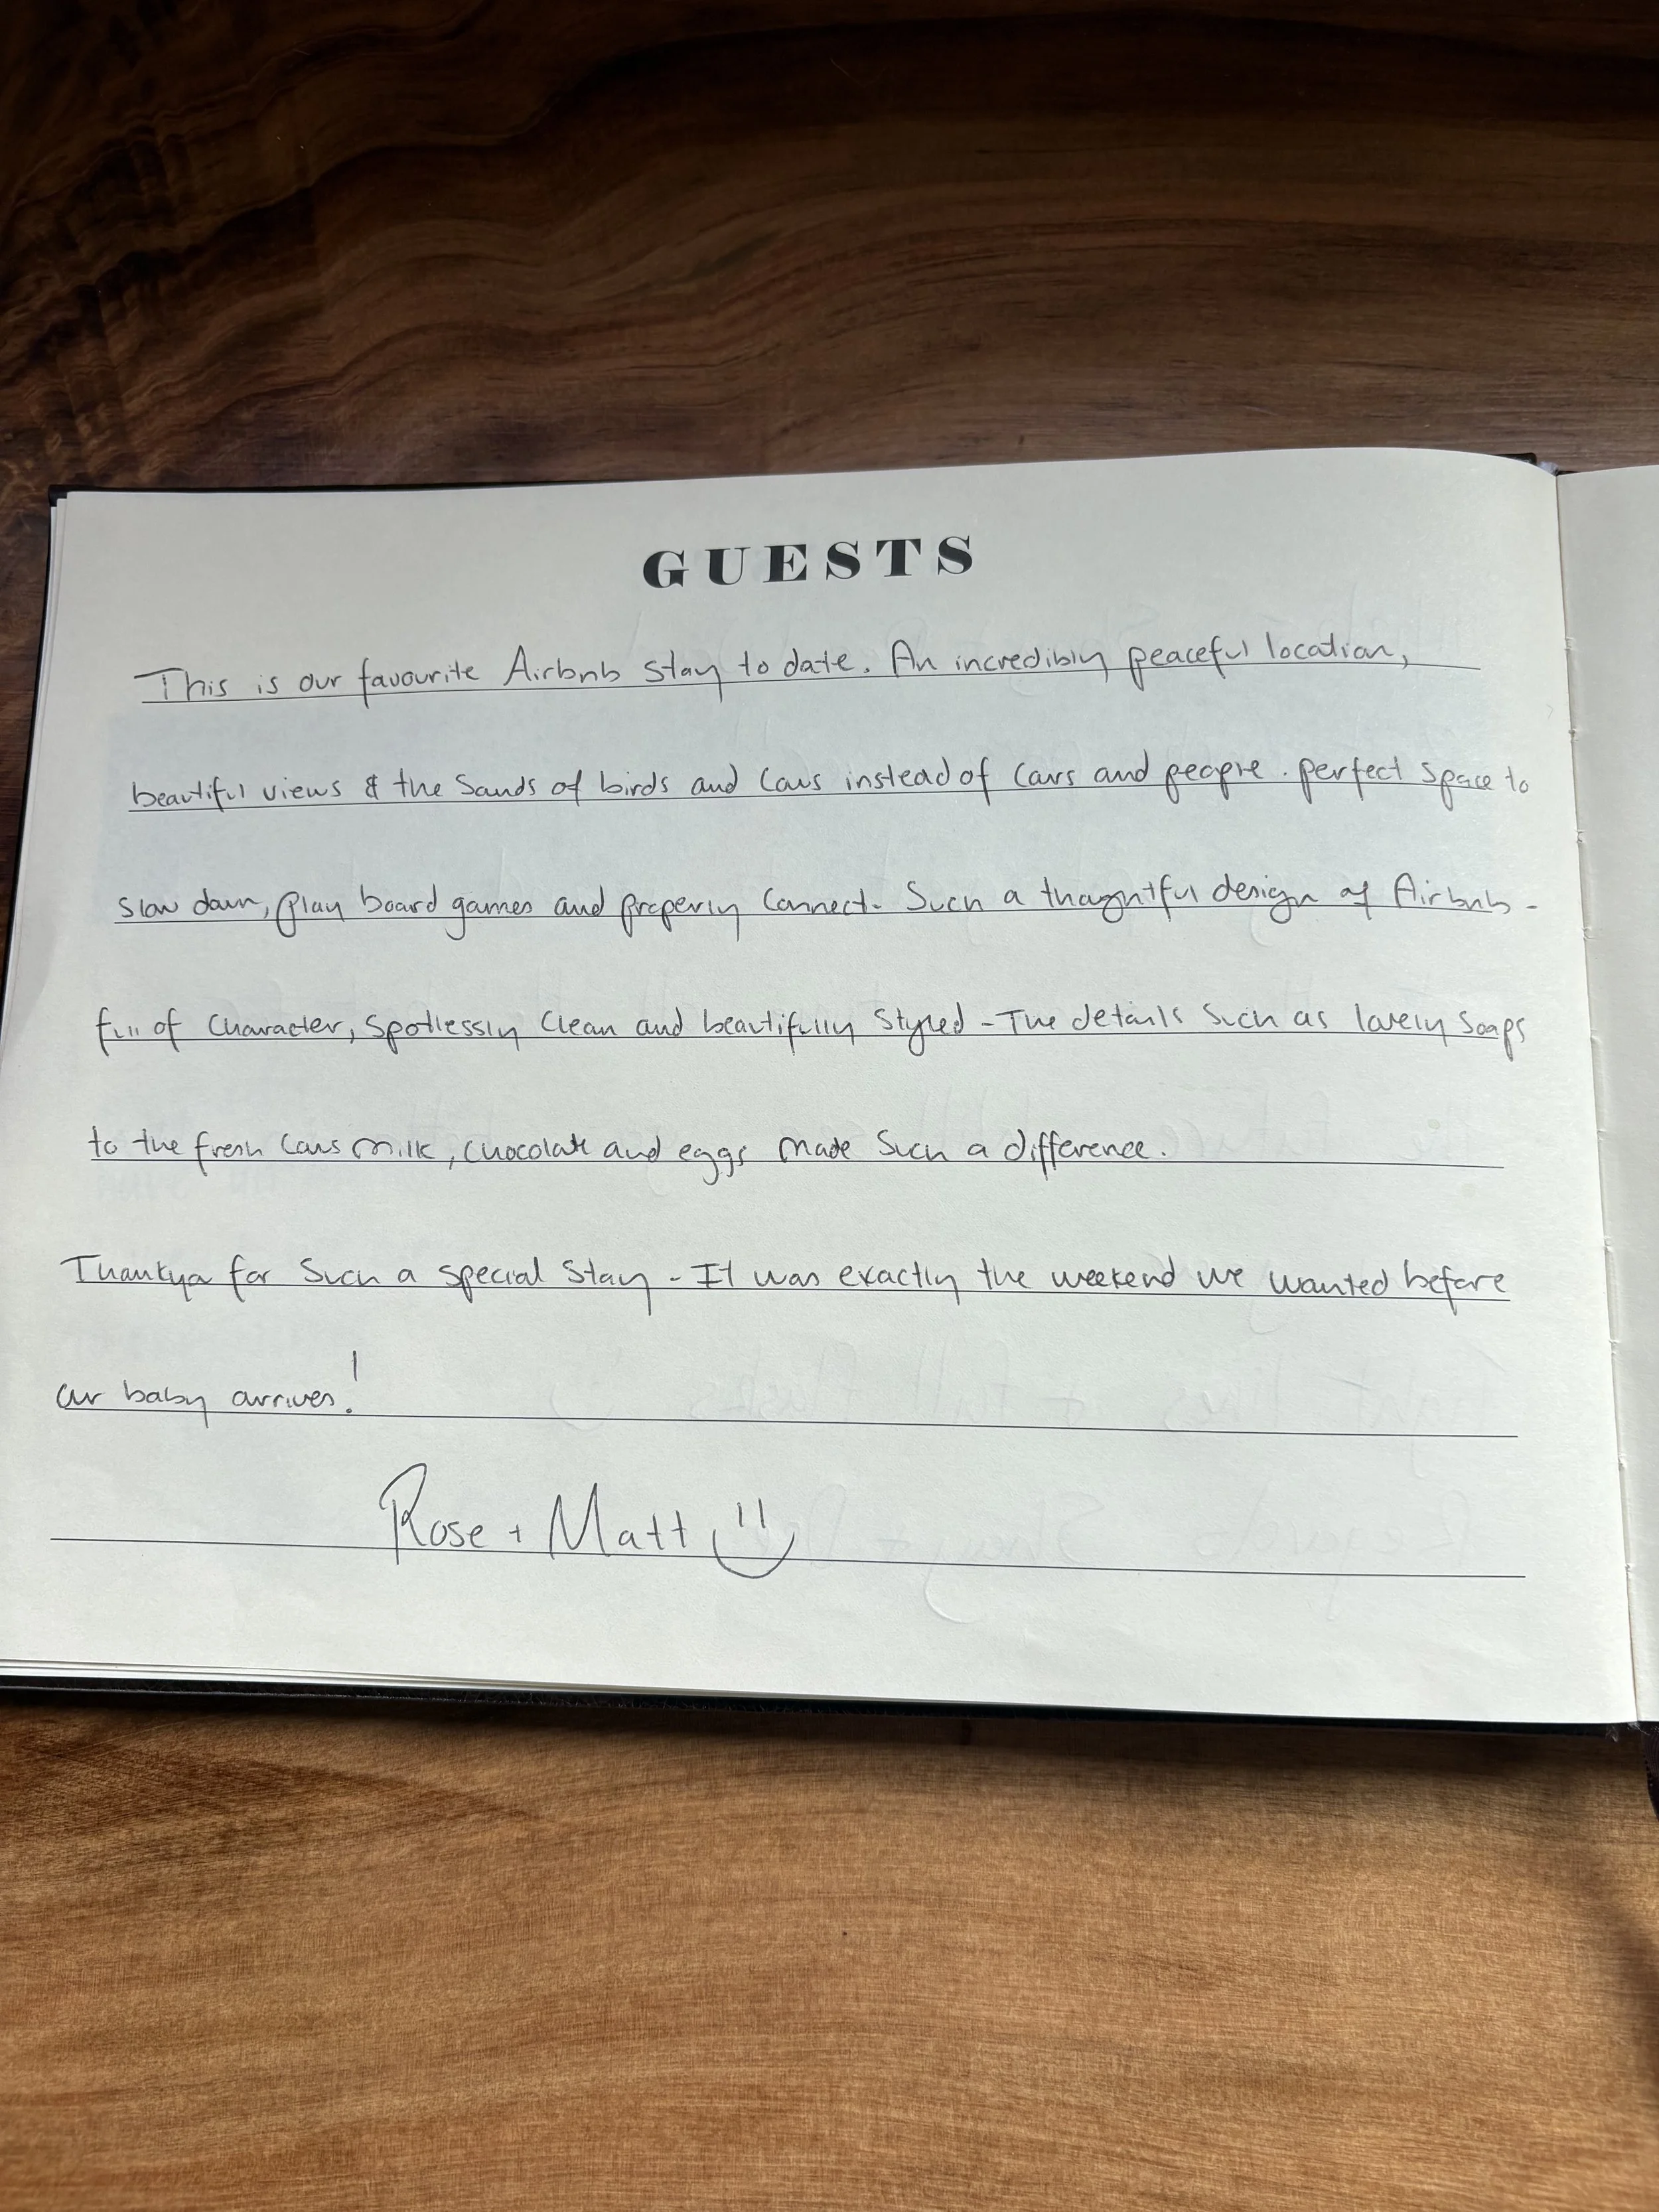 GUESTS
This is our favourite Airbnb stay to date. An incredibly peaceful location,
beautiful views & the sounds of birds and cows instead of cars and people. perfect space to
slow down, play board games and properly connect. Such a thoughtful design of Airbnb -
full of character, spotlessly clean and beautifully styled - The details such as lovely soaps
to the fresh cows milk, chocolate and eggs made such a difference.
Thankyou for such a special stay - It was exactly the weekend we wanted before
our baby arrives!
Rose + Matt